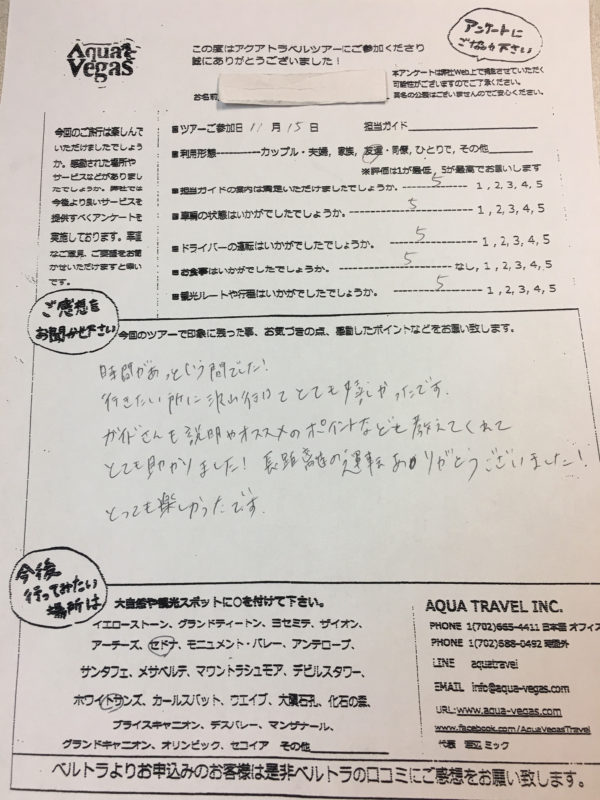 Aqua Vegas
この度はアクアトラベルツアーにご参加くださり
誠にありがとうございました！
アンケートに
ご協力下さい
本アンケートは弊社Web上で掲載させていただく
可能性がございますのでご了承ください。
実名の公表はございませんのでご安心ください。
お名前
今回のご旅行は楽しんで
いただけましたでしょう
か。感動された場所や
サービスなどがありまし
たでしょうか。弊社では
今後より良いサービスを
提供すべくアンケートを
実施しております。率直
なご意見、ご要望をお聞
かせいただけますと幸い
です。
■ツアーご参加日 11 月 15 日 担当ガイド
■利用形態-----------カップル・夫婦, 家族, 友達・同僚, ひとりで, その他
※評価は1が最低, 5が最高でお願いします
■担当ガイドの案内は満足いただけましたでしょうか。 5 1, 2, 3, 4, 5
■車輌の状態はいかがでしたでしょうか。 5 1, 2, 3, 4, 5
■ドライバーの運転はいかがでしたでしょうか。 5 1, 2, 3, 4, 5
■お食事はいかがでしたでしょうか。 5 なし, 1, 2, 3, 4, 5
■観光ルートや行程はいかがでしたでしょうか。 5 1, 2, 3, 4, 5
ご感想を
お聞かせ下さい
今回のツアーで印象に残った事、お気づきの点、感動したポイントなどをお願い致します。
時間があっという間でした！
行きたい所に沢山行けてとても嬉しかったです。
ガイドさんも説明やオススメのポイントなども教えてくれて
とても助かりました！長距離の運転ありがとうございました！
とっても楽しかったです。
今後
行ってみたい
場所は
大自然や観光スポットに○を付けて下さい。
イエローストーン、グランドティートン、ヨセミテ、ザイオン、
アーチーズ、セドナ、モニュメント・バレー、アンテロープ、
サンタフェ、メサベルデ、マウントラシュモア、デビルスタワー、
ホワイトサンズ、カールスバット、ウエイブ、大隕石孔、化石の森、
ブライスキャニオン、デスバレー、マンザナール、
グランドキャニオン、オリンピック、セコイア その他
AQUA TRAVEL INC.
PHONE 1(702)665-4411 日本語 オフィス
PHONE 1(702)688-0492 時間外
LINE aquatravel
EMAIL info@aqua-vegas.com
URL:www.aqua-vegas.com
www.facebook.com/AquaVegasTravel
代表 渡辺 ミック
ベルトラよりお申込みのお客様は是非ベルトラの口コミにご感想をお願い致します。